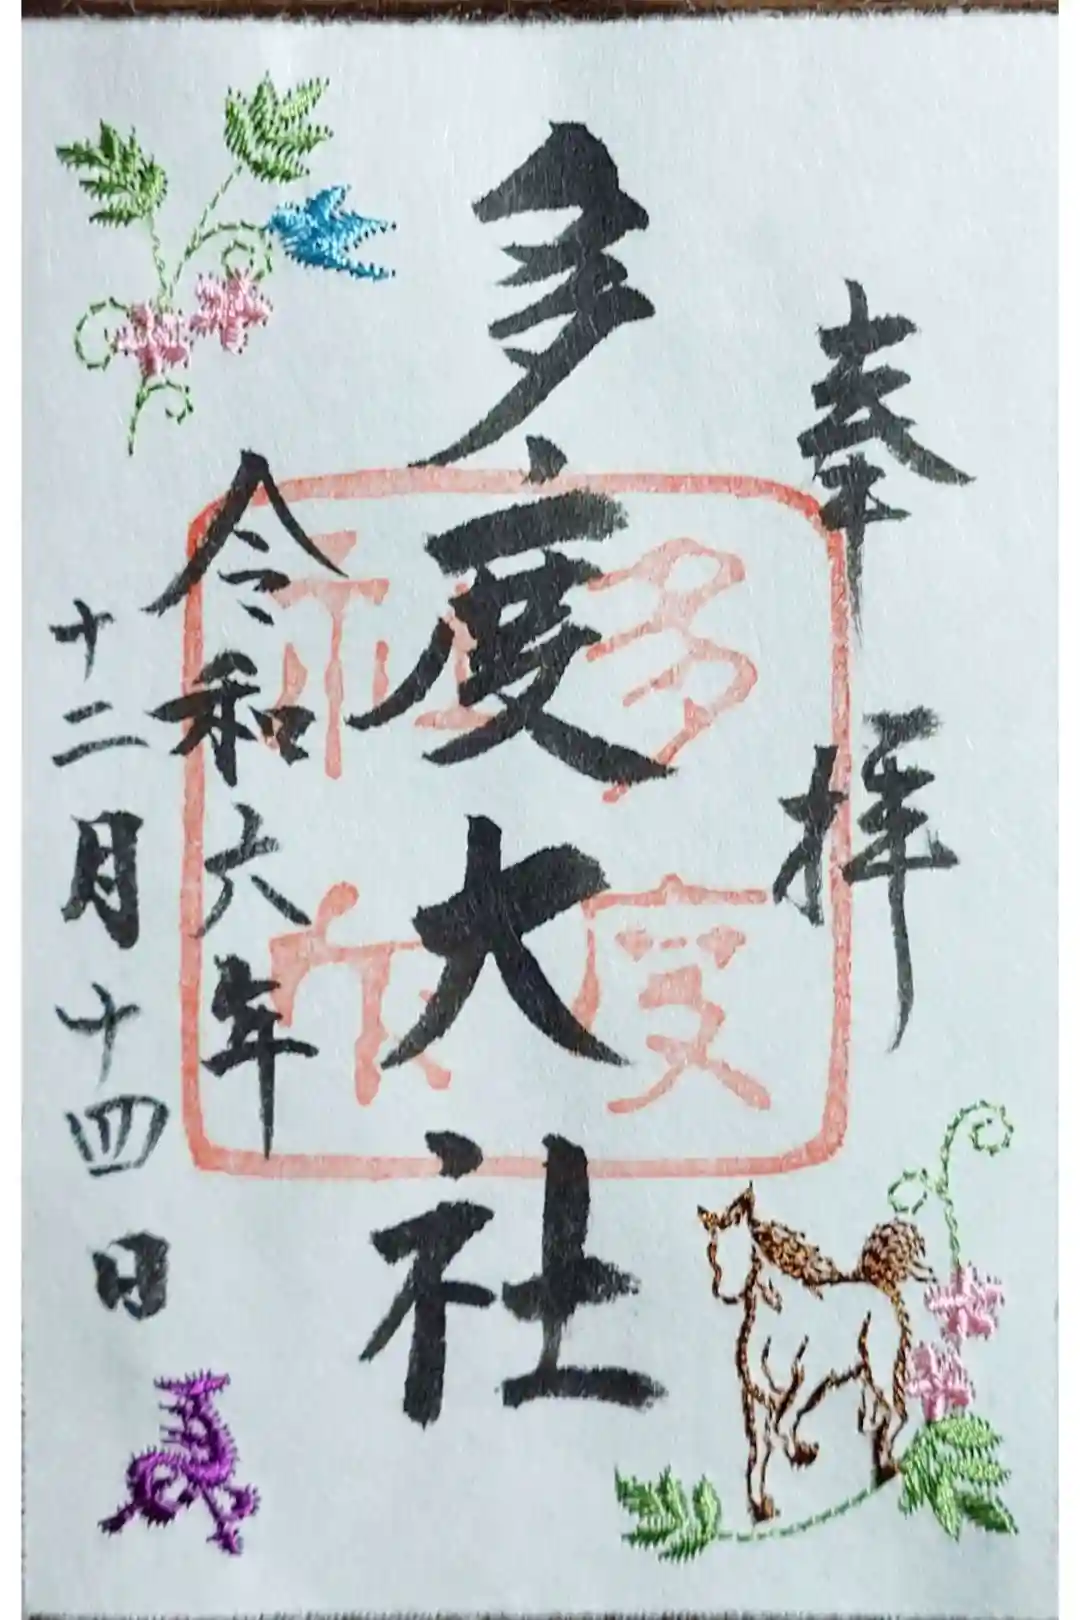 奉拝
多度大社
令和六年
十二月十四日
多度